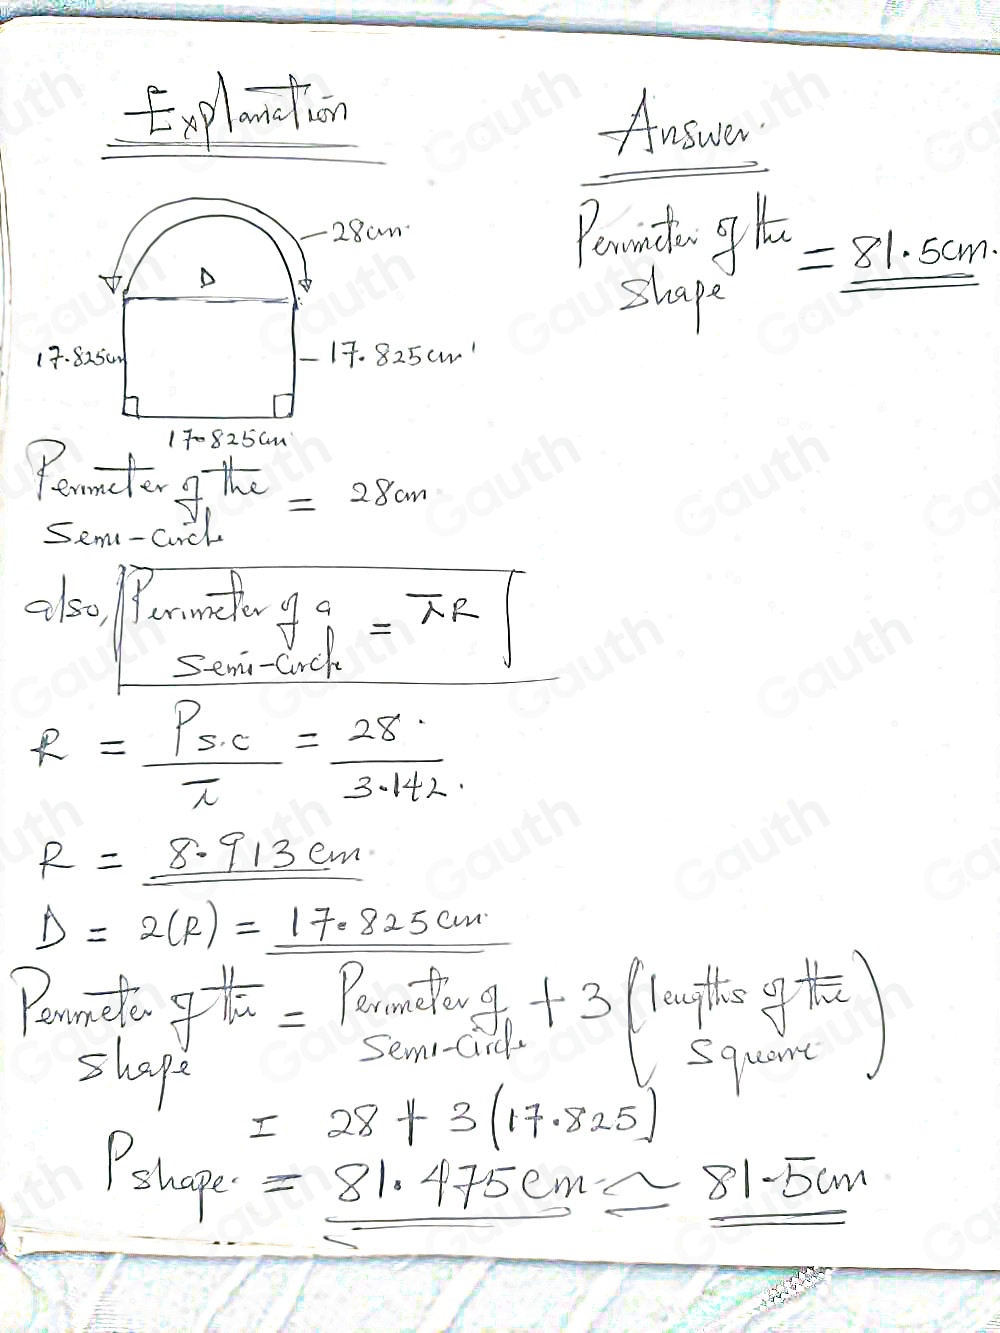 Explanation
28cm
D
17.825cm
17.825cm
17.825cm
Perimeter of the Semi-Circle = 28cm
also, Perimeter of a Semi-Circle = πR
R = Ps.c / π = 28 / 3.142.
R = 8.913cm
D = 2(R) = 17.825cm
Perimeter of the Shape = Perimeter of Semi-Circle + 3 (lengths of the Square)
= 28 + 3(17.825)
Pshape = 81.475cm ≃ 81.5cm
Answer
Perimeter of the Shape = 81.5cm.
Gauth